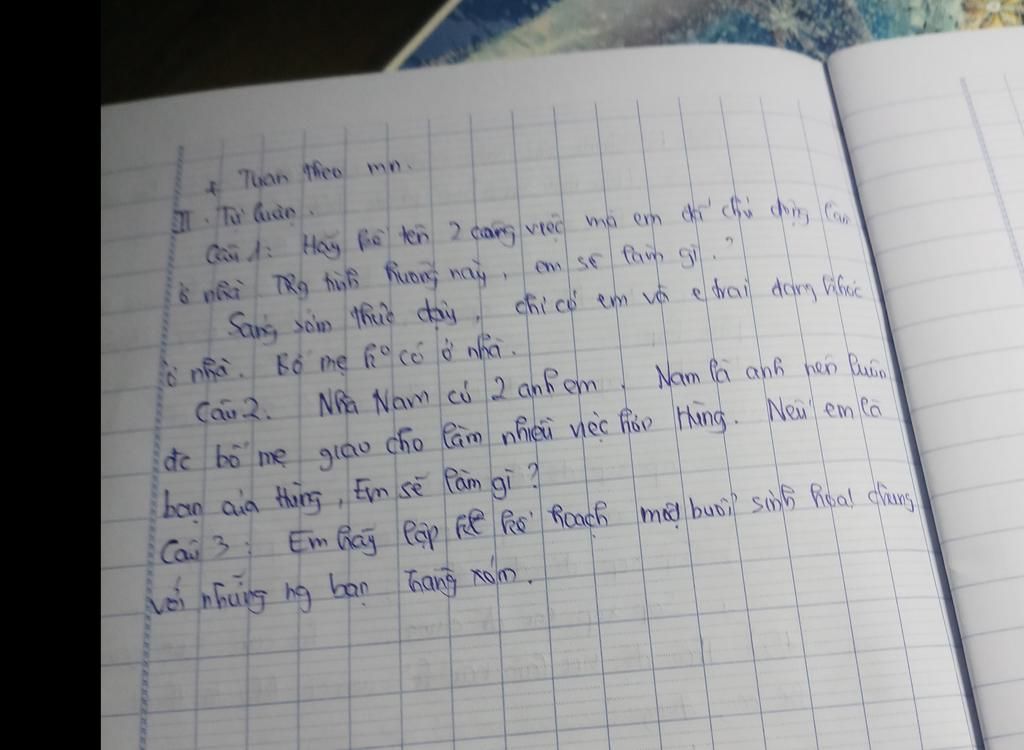 + Tuan theo mn.
II. Tự luận.
Câu 1: Hãy kể tên 2 công việc mà em đã chủ động làm
ở nhà Trg tình huống này, em sẽ làm gì?
Sáng sớm thức dậy, chỉ có em và e trai đang khóc
ở nhà. Bố mẹ ko có ở nhà.
Câu 2. Nhà Nam có 2 anh em. Nam là anh nên luôn
đc bố mẹ giao cho làm nhiều việc hơn Hùng. Nếu em là
bạn của Hùng, Em sẽ làm gì?
Câu 3: Em hãy lập kế hoạch một buổi sinh hoạt chung
với những ng bạn hàng xóm.